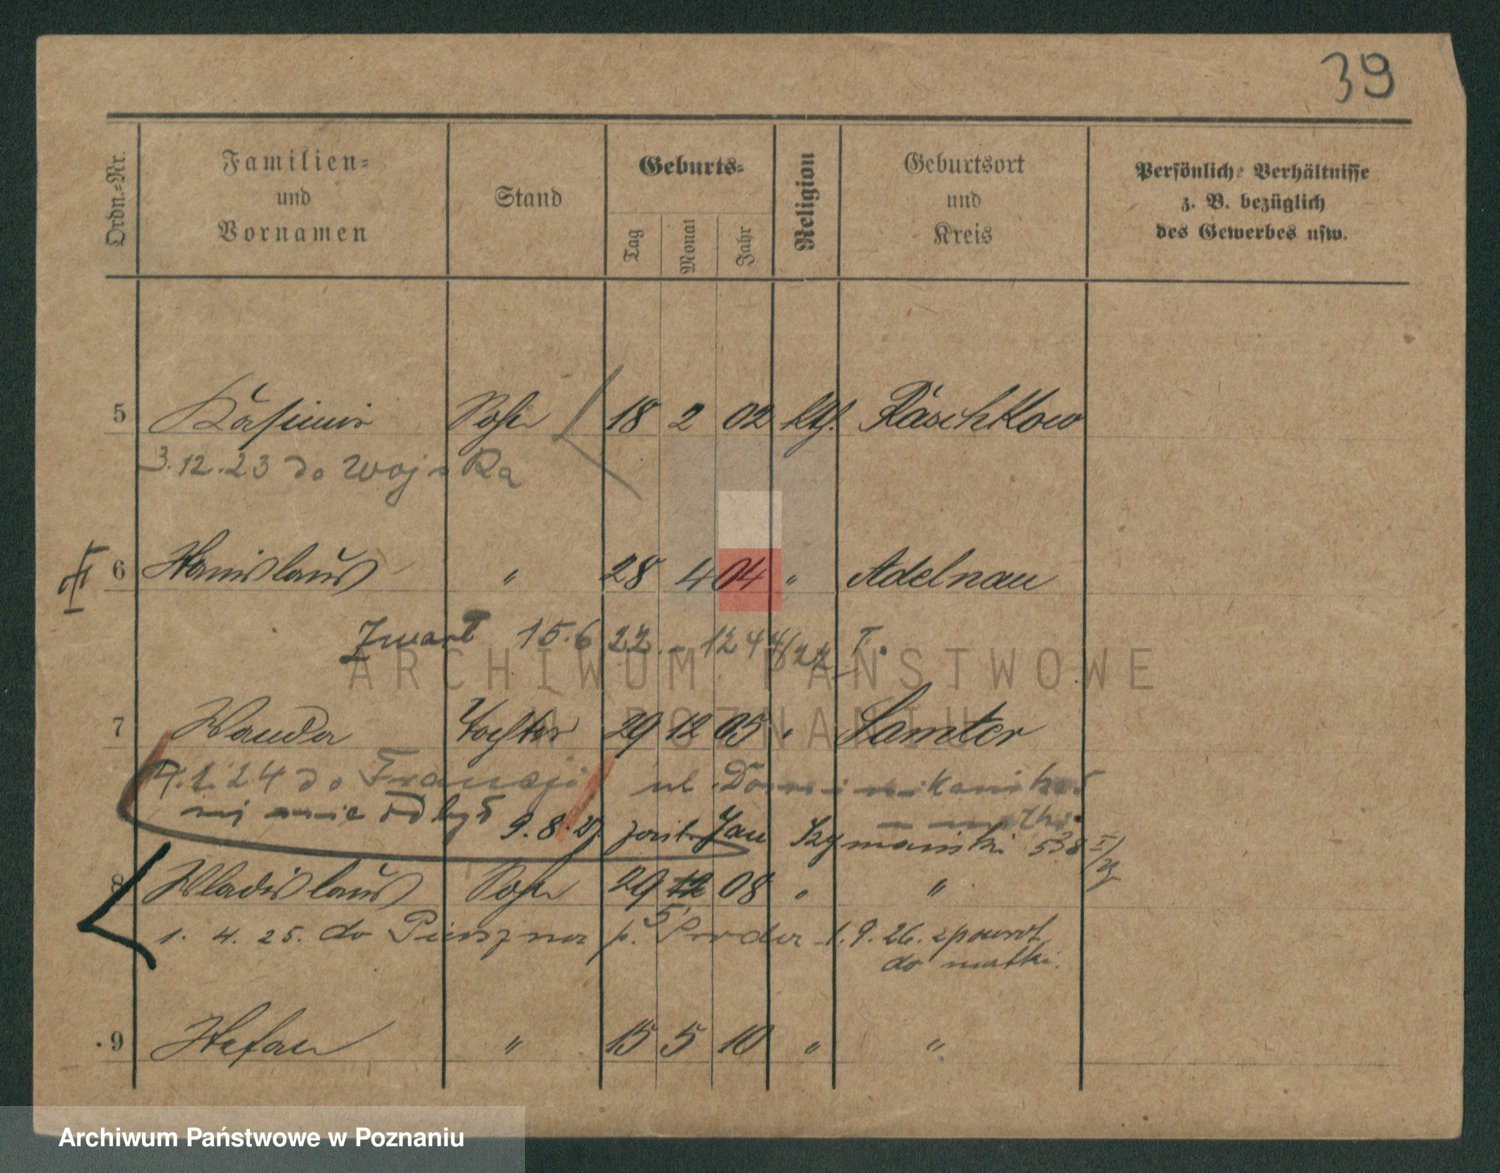 39
Ordn.-Nr.
Familien-
und
Vornamen
Stand
Geburts-
Tag
Monat
Jahr
Religion
Geburtsort
und
Kreis
Persönliche Verhältnisse
z. B. bezüglich
des Gewerbes usw.
5 Kasimir Sohn 18 2 02 kth. Raschkow
3.12.23 do wojska
6 Stanislaus " 28 4 04 " Adelnau
Zmarł 15.6 22. - 1244/22
7 Wanda Tochter 29 12 05 " Samter
1.24 do Francji ul.
9.8. Jan Szymański 538
8 Wladislaus Sohn 29 5 08 " "
1. 4. 25. do p. 1.9.26. zpowrot
do matki.
9 Stefan " 15 5 10 " "
ARCHIWUM PAŃSTWOWE
W POZNANIU
Archiwum Państwowe w Poznaniu